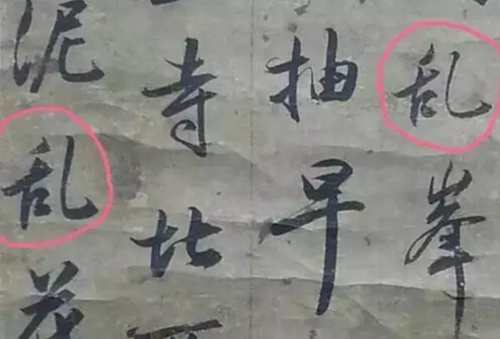 乱峯
抽早
寺北
泥乱花